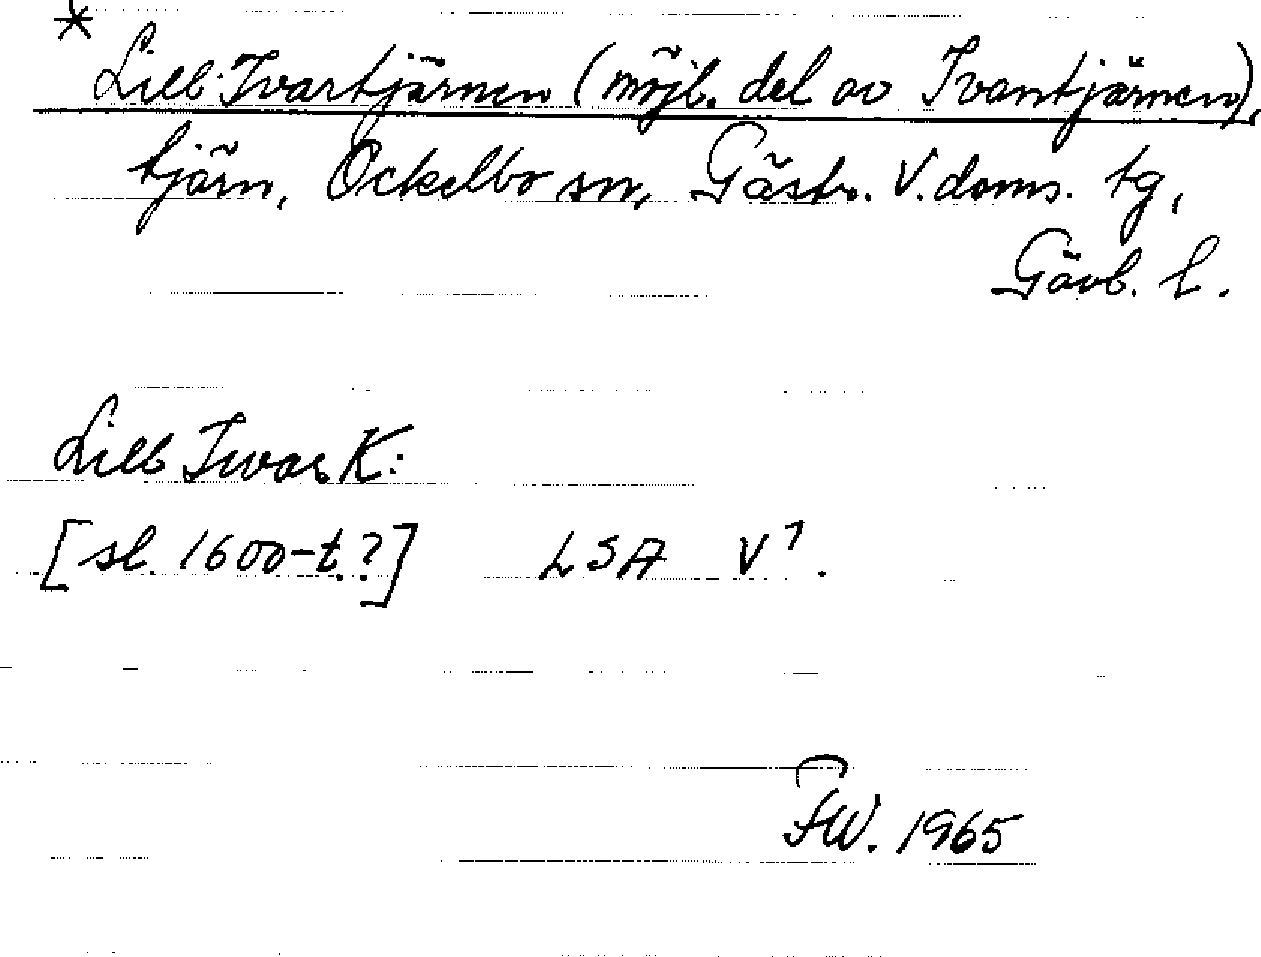 *
Lill-Ivartjärnen (möjl. del av Ivantjärnen),
tjärn, Ockelbo sn, Gästr. V. doms. tg,
Gävl. l.
Lill Iwar K:
[sl. 1600-t.?] LSA V 7.
FW. 1965